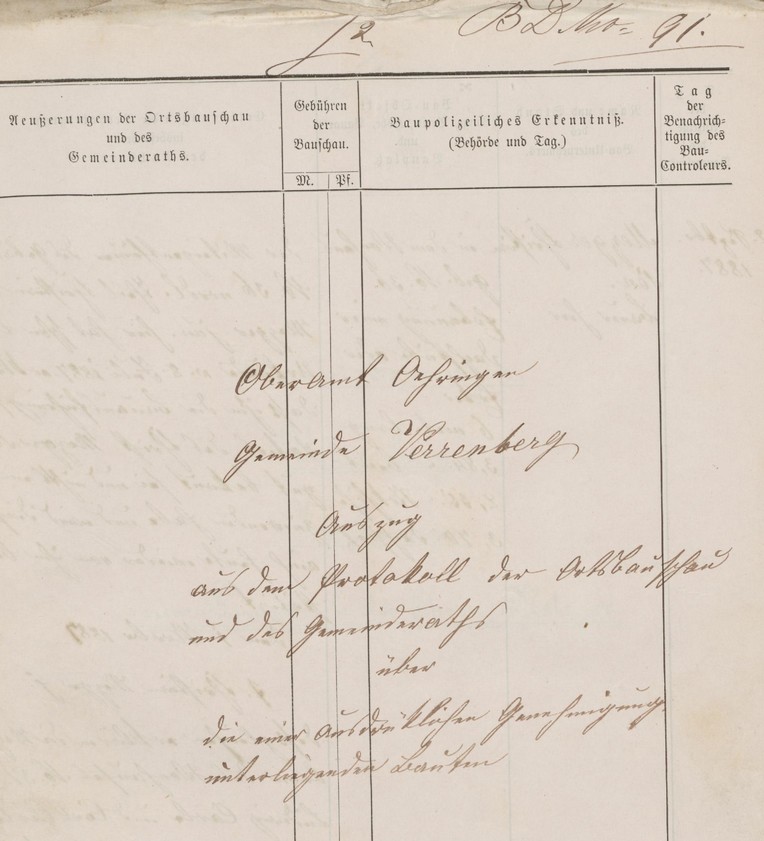 B D No= 91.
Aeußerungen der Ortsbauschau
und des
Gemeinderaths.
Gebühren
der
Bauschau.
M. Pf.
Baupolizeiliches Erkenntniß.
(Behörde und Tag.)
Tag
der
Benachrich-
tigung des
Bau-
Controleurs.
Oberamt Oehringen
Gemeinde Verrenberg
Auszug
aus dem Protokoll der Ortsbauschau
und des Gemeinderaths
über
die einer ausdrüklichen Genehmigung
unterliegenden Bauten